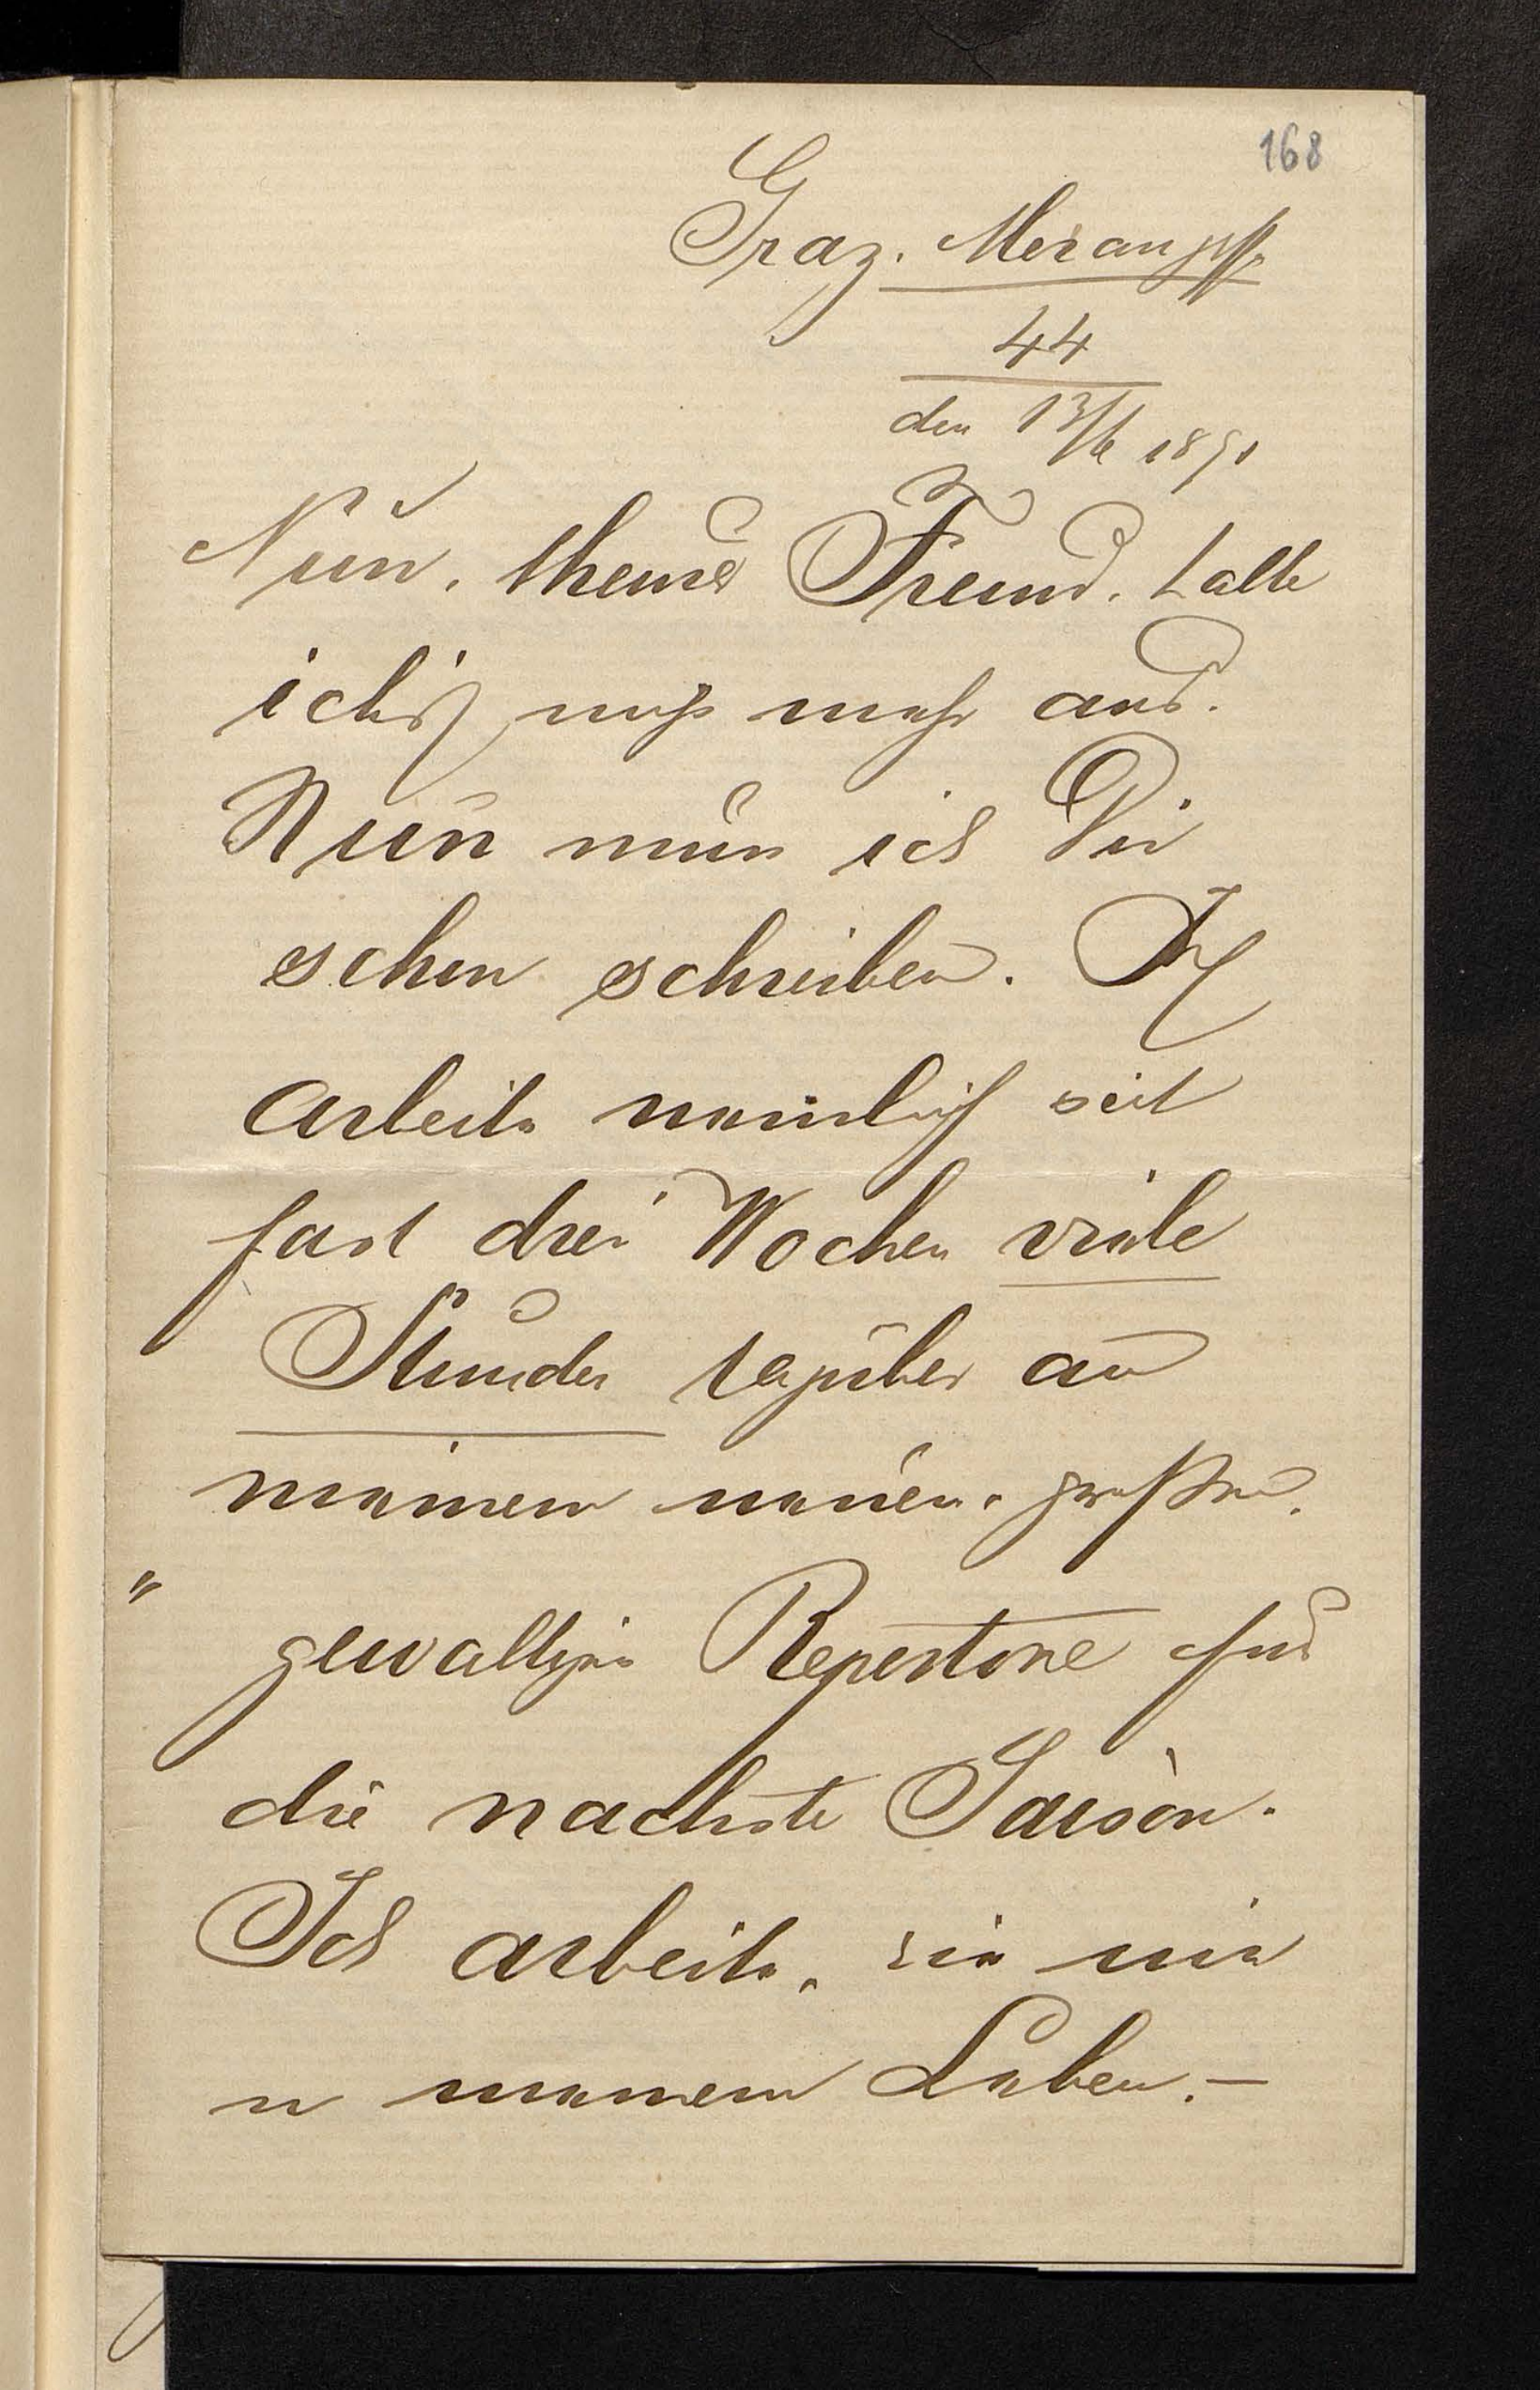 168
Graz. Merangsse
44
den 13/6 1891
Nun, theurer Freund, halte
ich's nicht mehr aus.
Nun muss ich Dir
schon schreiben. Ich
arbeite nämlich seit
fast drei Wochen viele
Stunden täglich an
meinem neuen, großen,
gewaltigen Repertoire für
die nächste Saison.
Ich arbeite, wie nie
in meinem Leben. —